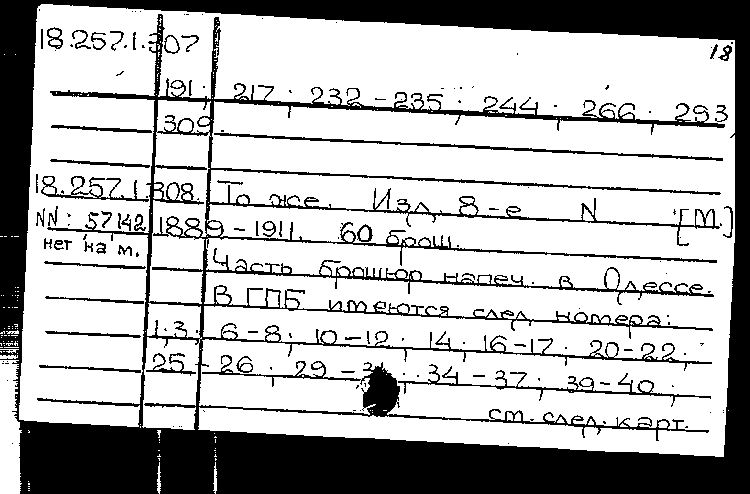 18
18.257.1.307
191; 217; 232-235; 244; 266; 293,
309.
18.257.1.308. То же. Изд. 8-е N [М.]
NN: 57, 142 1889-1911. 60 брош.
нет на м.
Часть брошюр напеч. в Одессе.
В ГПБ имеются след. номера:
1; 3; 6-8; 10-12; 14; 16-17; 20-22;
25-26; 29-31; 34-37; 39-40;
см. след. карт.